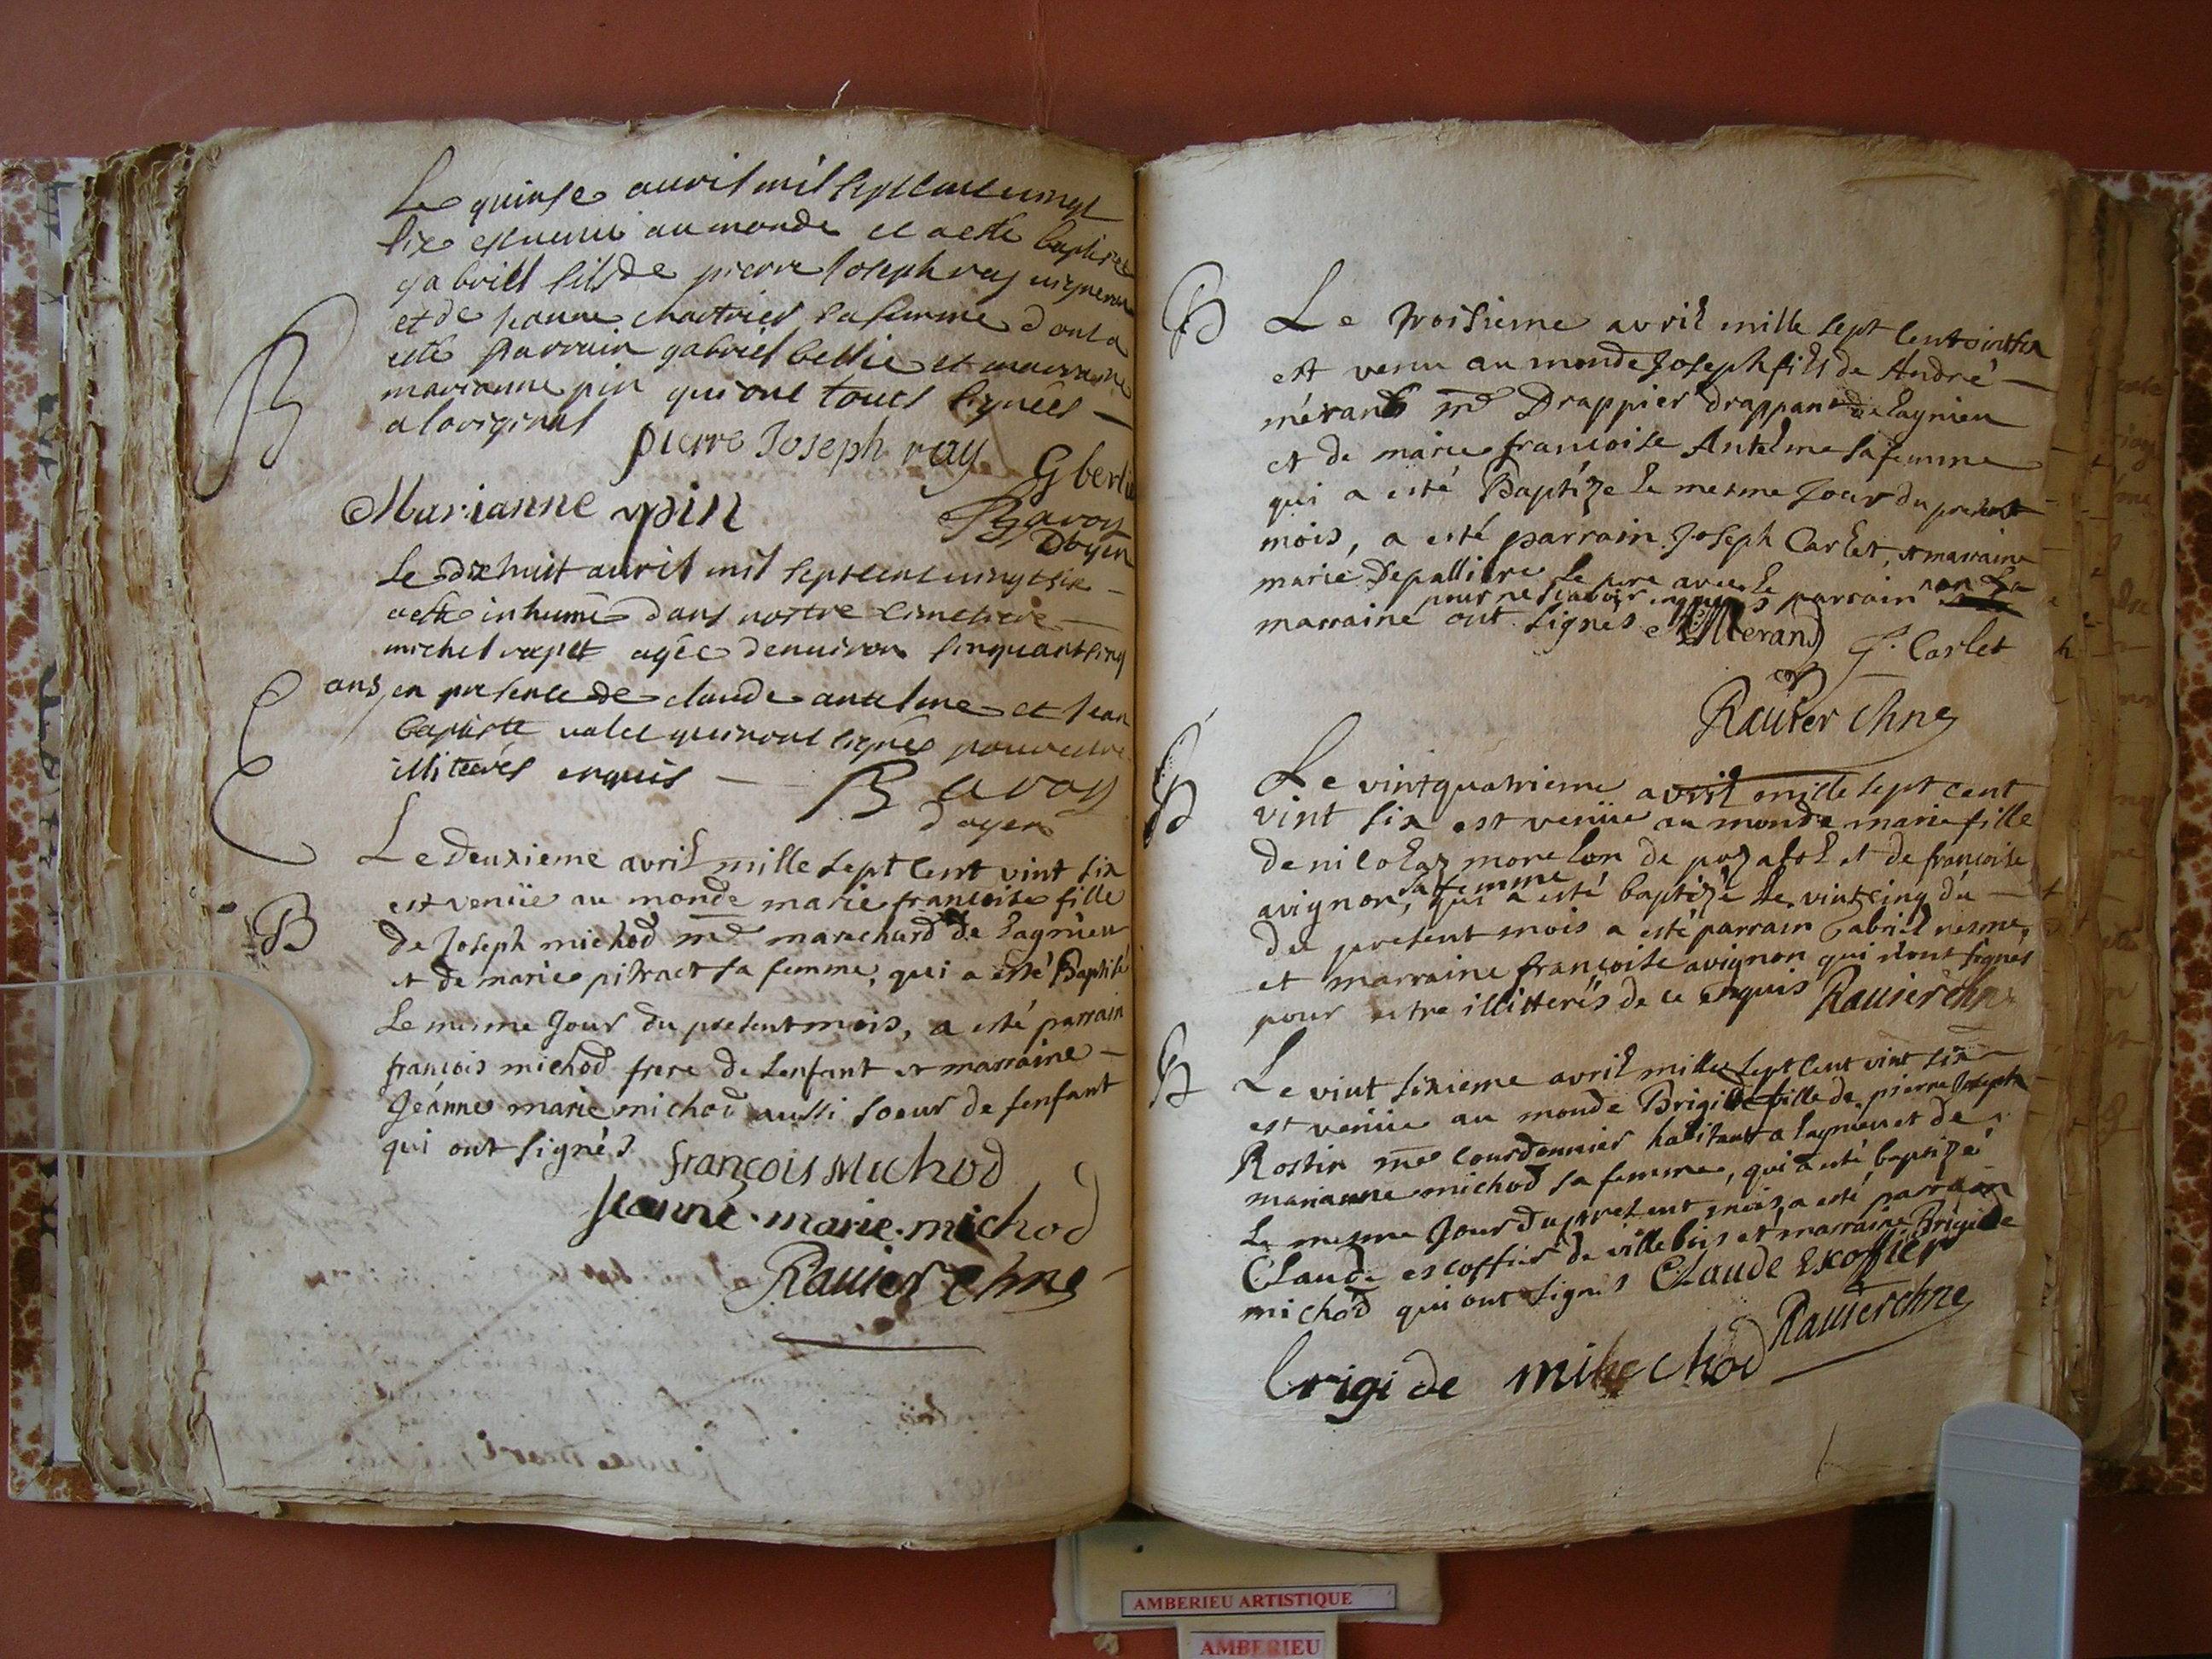 Le quinse auvril mil septcent vingt
six est venu au monde et a esté baptisée
gabriel fils de pierre Joseph ray vigneron
et de jeanne chartrier sa femme dont a
esté parrain gabriel bellie et marraine
marianne pin qui ont touts signéés
a loriginal
pierre Joseph ray
G berlie
Marianne pin
B
doyen
Le dixhuit auvril mil septcent vingt six
a esté inhumé dans nostre cimetiere
michel agéé denuiron sinquantsinq
ans, en presence de claude antelme et Jean
baptiste valet qui nont signés pour estre
illiterés enquis
doyen
Le deuxieme avril mille sept cent vint six
est venüe au monde marie francoise fille
B
de Joseph michod md marechard de Lagnieu
et de marie pitract sa femme, qui a esté Baptisé
Le mesme Jour du present mois, a esté parrain
francois michod frere de Lenfant et marraine
Jéanne marie michod aussi soeur de Lenfant
qui ont signés
françois Michod
Jeanne. marie. michod
Rauier chne
B
Le troisieme avril mille sept cent vint six
est venu au monde Joseph fils de André
mérand md Drappier drappant de Lagnieu
et de marie francoise Antelme sa femme
qui a esté Baptize le mesme Jour du present
mois, a esté parrain Joseph Carlet, et marraine
marie Depalliere le pere avec le parrain non La
pour ne scavoir enquis
marraine ont signés
Merand
J. Carlet
Rauier chne
B
Le vintquatrieme avril mille sept cent
vint six est venüe au monde marie fille
de nicolaz morelon de pozafol et de francoise
avignon, sa femme qui a esté baptizé le vintcinq du
du present mois a esté parrain Gabriel nesme,
et marraine francoise avignon qui n'ont signes
pour estre illitterés de ce enquis Rauier chne
B
Le vint sixieme avril mille sept cent vint six
est venüe au monde Brigide fille de pierre Joseph
Rostin me courdonnier habitant a Lagnieu et de
marianne michod sa femme, qui a esté baptizé
Le mesme Jour du present mois, a esté parrain
Claude escoffier de villebois et marraine Brigide
michod qui ont signés
Claude Exoffier
Rauier chne
brigide michod
AMBERIEU ARTISTIQUE
AMBERIEU